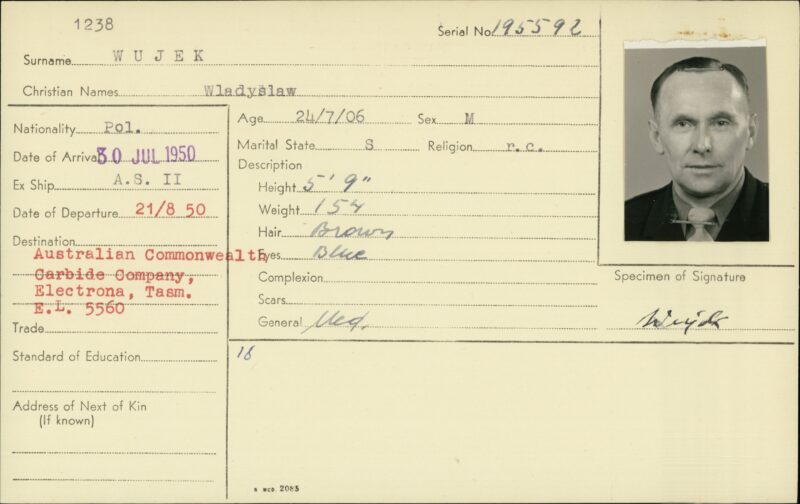 1238
Serial No. 195592
Surname WUJEK
Christian Names Wladyslaw
Nationality Pol.
Date of Arrival 30 JUL 1950
Ex Ship A.S. II
Date of Departure 21/8 50
Destination
Australian Commonwealth
Carbide Company,
Electrona, Tasm.
E.L. 5560
Trade
Standard of Education
Address of Next of Kin
(If known)
Age 24/7/06 Sex M
Marital State S Religion r.c.
Description
Height 5' 9"
Weight 154
Hair Brown
Eyes Blue
Complexion
Scars
General Med.
16
Specimen of Signature
Wujek
2085